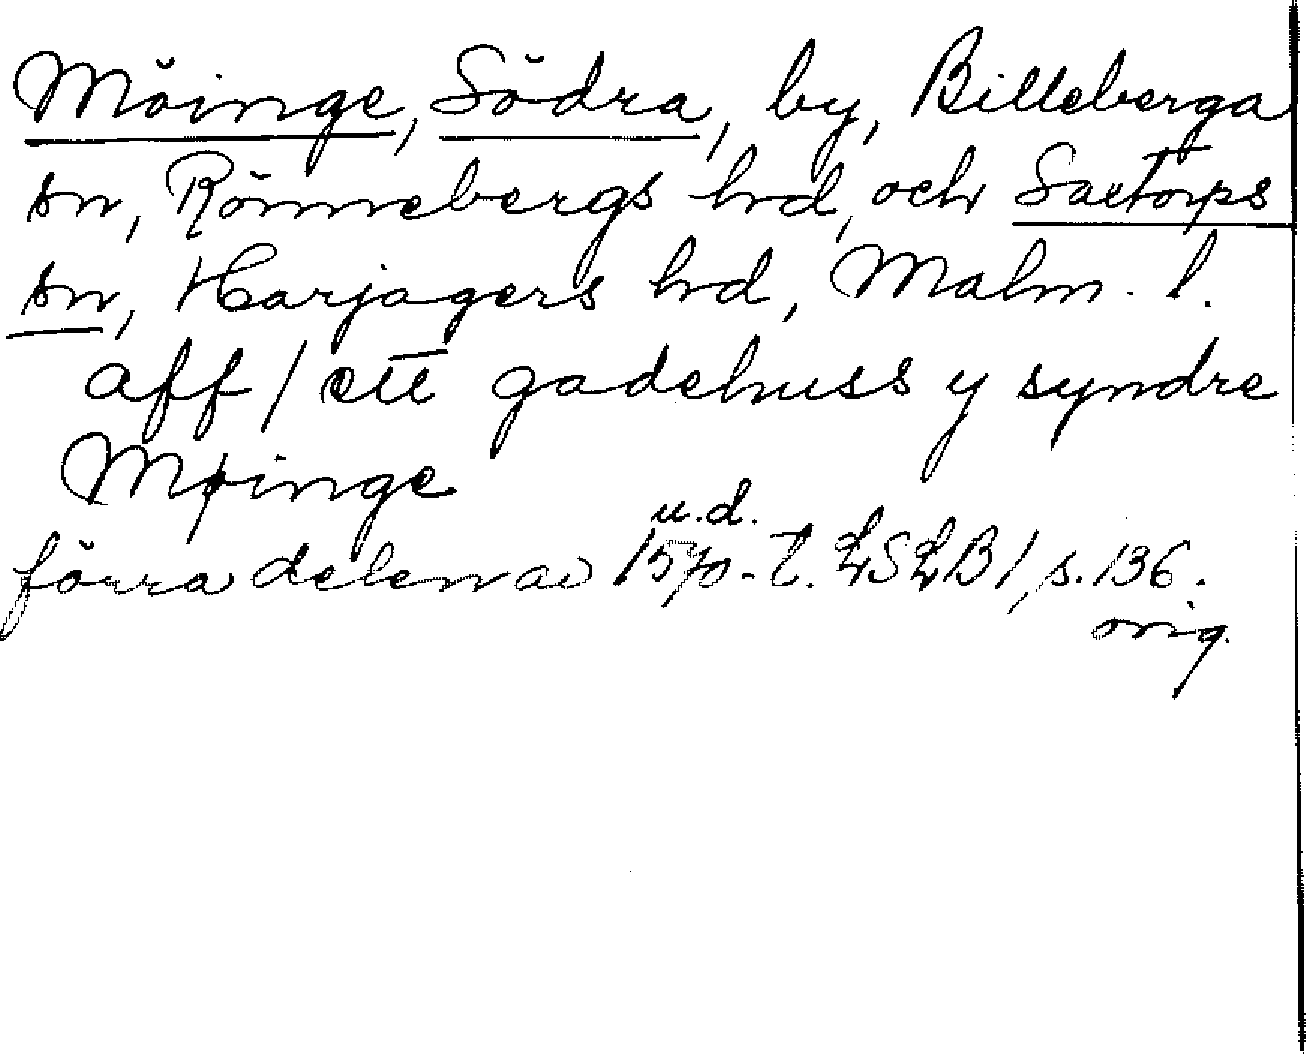 Möinge, Södra, by, Billeberga
sn, Rönnebergs hrd, och Saxtorps
sn, Harjagers hrd, Malm. l.
aff / ett gadehuss y syndre
Møinge
u.d.
förra delen av 1570-t. LSLB 1, s. 136.
orig.